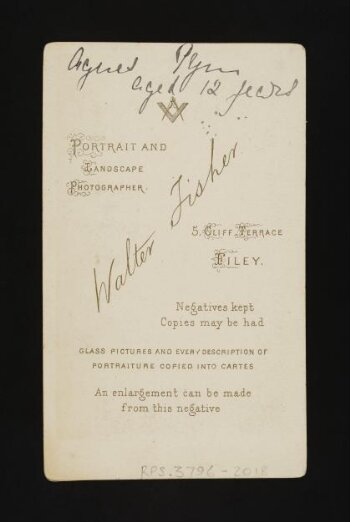 Agnes Plym
aged 12 years
PORTRAIT AND
LANDSCAPE
PHOTOGRAPHER.
Walter Fisher
5, CLIFF TERRACE
FILEY.
Negatives kept
Copies may be had
GLASS PICTURES AND EVERY DESCRIPTION OF
PORTRAITURE COPIED INTO CARTES
An enlargement can be made
from this negative
RPS.3796-2018